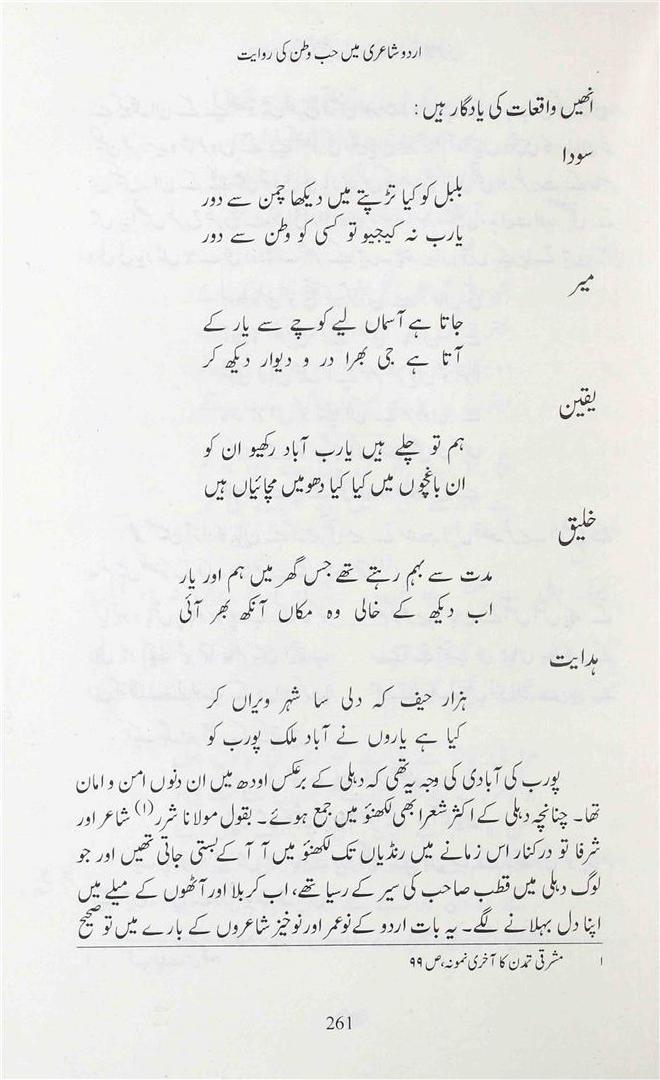 اردو شاعری میں حب وطن کی روایت
انھیں واقعات کی یادگار ہیں:
سودا
بلبل کو کیا تڑپتے میں دیکھا چمن سے دور
یارب نہ کیجیو تو کسی کو وطن سے دور
میر
جاتا ہے آسماں لیے کوچے سے یار کے
آتا ہے جی بھرا در و دیوار دیکھ کر
یقین
ہم تو چلے ہیں یارب آباد رکھیو ان کو
ان باغچوں میں کیا کیا دھومیں مچائیاں ہیں
خلیق
مدت سے بہم رہتے تھے جس گھر میں ہم اور یار
اب دیکھ کے خالی وہ مکاں آنکھ بھر آئی
ہدایت
ہزار حیف کہ دلی سا شہر ویراں کر
کیا ہے یاروں نے آباد ملک پورب کو
پورب کی آبادی کی وجہ یہ تھی کہ دہلی کے برعکس اودھ میں ان دنوں امن و امان
تھا۔ چنانچہ دہلی کے اکثر شعرا بھی لکھنؤ میں جمع ہوئے۔ بقول مولانا شرر(۱) شاعر اور
شرفا تو درکنار اس زمانے میں رنڈیاں تک لکھنؤ میں آ آ کے بستی جاتی تھیں اور جو
لوگ دہلی میں قطب صاحب کی سیر کے رسیا تھے، اب کربلا اور آٹھوں کے میلے میں
اپنا دل بہلانے لگے۔ یہ بات اردو کے نوعمر اور نوخیز شاعروں کے بارے میں تو صحیح
۱ مشرقی تمدن کا آخری نمونہ، ص ۹۹
261